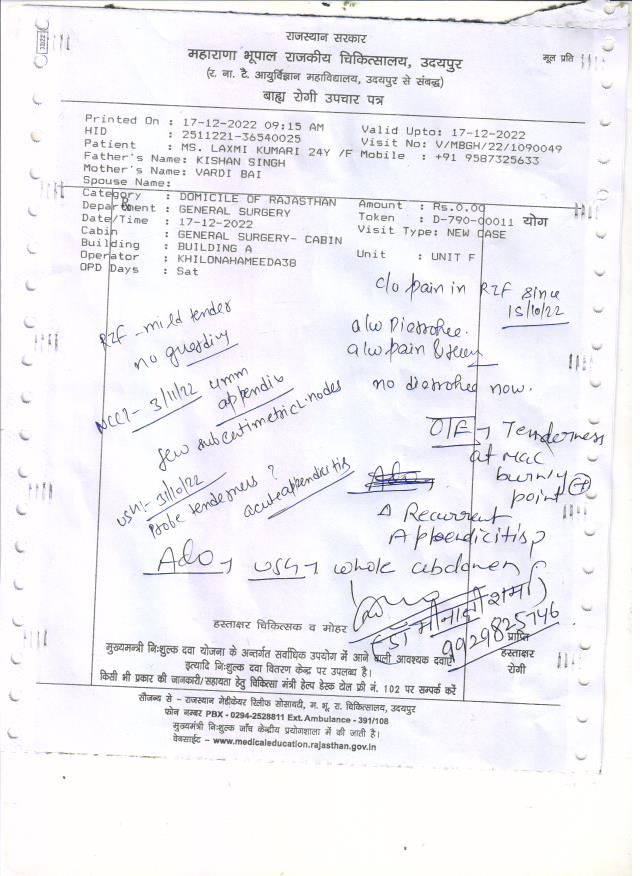 राजस्थान सरकार
महाराणा भूपाल राजकीय चिकित्सालय, उदयपुर
मूल प्रति
(र. ना. टै. आयुर्विज्ञान महाविद्यालय, उदयपुर से संबद्ध)
बाह्य रोगी उपचार पत्र
Printed On : 17-12-2022 09:15 AM Valid Upto: 17-12-2022
HID : 2511221-36540025 Visit No: V/MBGH/22/1090049
Patient : MS. LAXMI KUMARI 24Y /F Mobile : +91 9587325633
Father's Name: KISHAN SINGH
Mother's Name: VARDI BAI
Spouse Name:
Category : DOMICILE OF RAJASTHAN Amount : Rs.0.00
Department : GENERAL SURGERY Token : D-790-00011 योग
Date/Time : 17-12-2022 Visit Type: NEW CASE
Cabin : GENERAL SURGERY- CABIN
Building : BUILDING A Unit : UNIT F
Operator : KHILONAHAMEEDA38
OPD Days : Sat
c/o pain in RIF since
15/10/22
RIF - mild tender
no guarding
a/w Diarrohea.
a/w pain &
no diarrohea now.
NCCT - 3/11/22 4mm
appendix
few subcentimetric L. nodes
O/E → Tenderness
at Mac
burny
point +
USG - 31/10/22
Probe tenderness ?
acute appendicitis
Adv
Δ Recurrent
Appendicitis
Adv → USG → whole abdomen
हस्ताक्षर चिकित्सक व मोहर
9929825746
प्राप्ति
हस्ताक्षर
रोगी
मुख्यमन्त्री निःशुल्क दवा योजना के अन्तर्गत सर्वाधिक उपयोग में आने वाली आवश्यक दवाऐं
इत्यादि निःशुल्क दवा वितरण केन्द्र पर उपलब्ध है।
किसी भी प्रकार की जानकारी/सहायता हेतु चिकित्सा मंत्री हेल्प डेस्क टोल फ्री नं. 102 पर सम्पर्क करें
सौजन्य से - राजस्थान मेडीकेयर रिलीफ सोसायटी, म. भू. रा. चिकित्सालय, उदयपुर
फोन नम्बर PBX - 0294-2528811 Ext. Ambulance - 391/108
मुख्यमन्त्री निःशुल्क जाँच केन्द्रीय प्रयोगशाला में की जाती है।
वेबसाईट - www.medicaleducation.rajasthan.gov.in